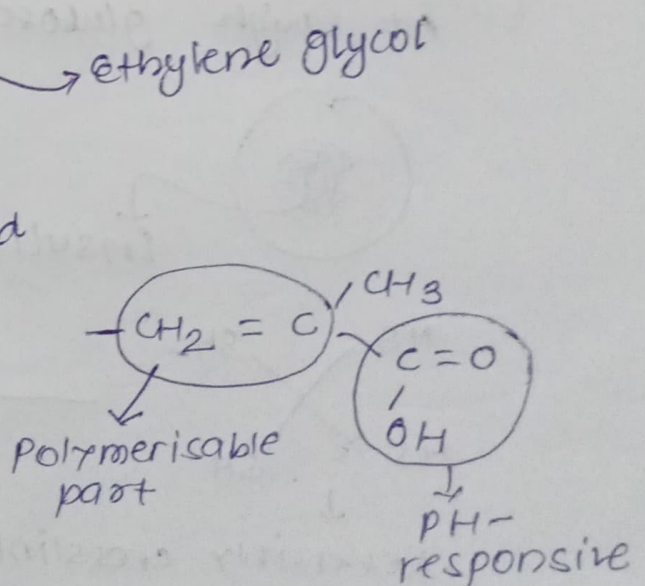 → Ethylene glycol
d
CH3
- CH2 = C
C = O
OH
Polymerisable
part
PH-
responsive